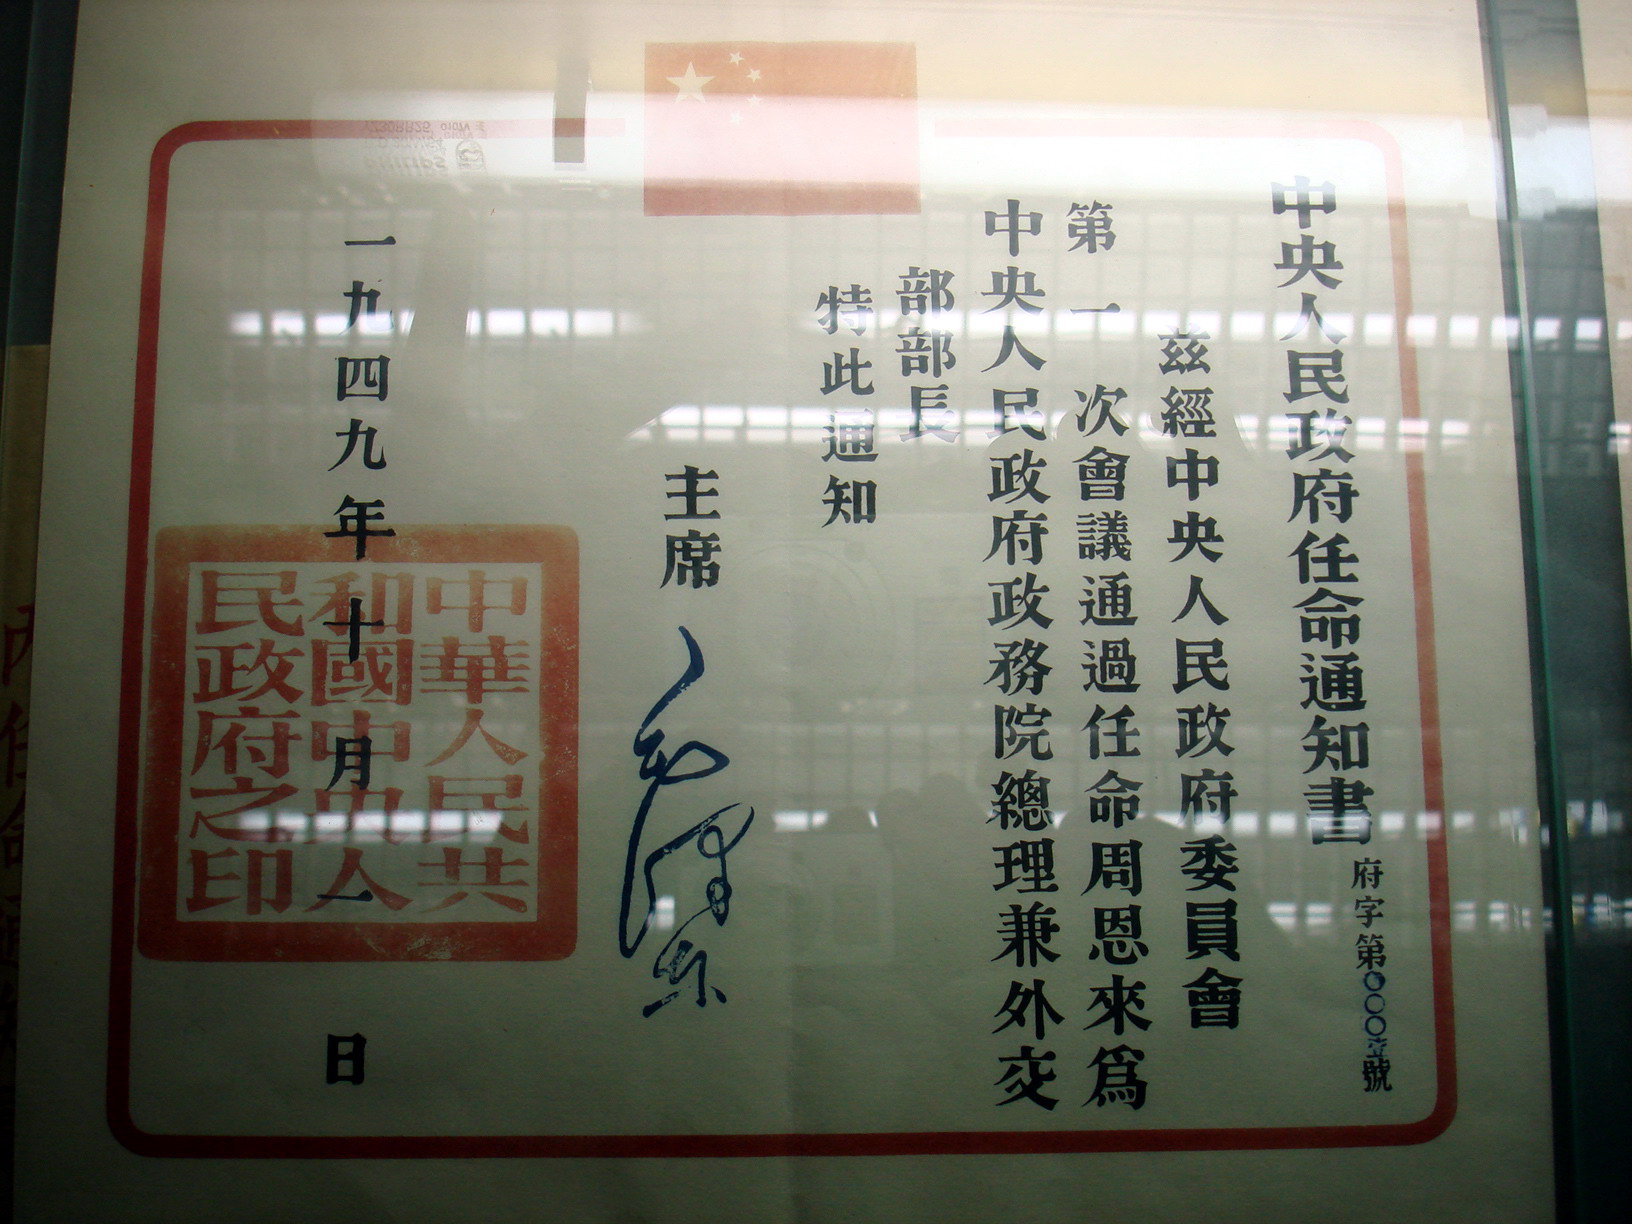 中央人民政府任命通知書
府字第〇〇〇壹號
茲經中央人民政府委員會
第一次會議通過任命周恩來爲
中央人民政府政務院總理兼外交
部部長
特此通知
主席 毛澤东
一九四九年十月一日
中華人民共
和國中央人
民政府之印
PHILIPS